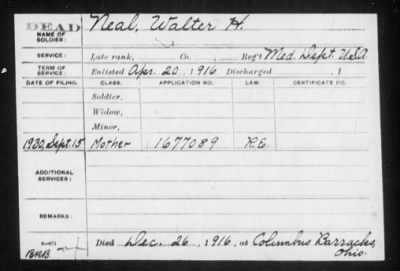 DEAD
NAME OF SOLDIER: Neal, Walter H.
SERVICE: Late rank, Co. , Reg't Med. Dept. U.S.A.
TERM OF SERVICE: Enlisted Apr. 20, 1916 Discharged , 1
DATE OF FILING. CLASS. APPLICATION NO. LAW. CERTIFICATE NO.
Soldier,
Widow,
Minor,
1930, Sept. 15 Mother 1677089 R.E.
ADDITIONAL SERVICES:
REMARKS:
Died Dec. 26, 1916, at Columbus Barracks, Ohio.